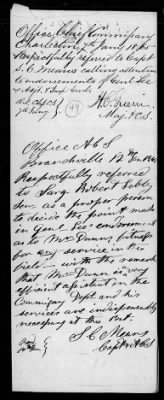 Office Chief Commissary
Charleston 7th Jany 1865
Respectfully referred to Capt
S. C. Means calling attention
to endorsements of Genl Lee
& Asst
H. C. Guerin
Maj. & C.S.
Office A C S
12
Respectfully referred
to Surg. Robert Lebby
Sen. as a proper person
to decide the point made
in Genl Lee's endorsement
as to Mr Dunn's fitness
for any service in the
field with the remark
that Mr Dunn is a very
efficient assistant in the
Commissary Dept and his
services are indispensably
necessary at this Post.
S. C. Means
Capt & A.C.S.